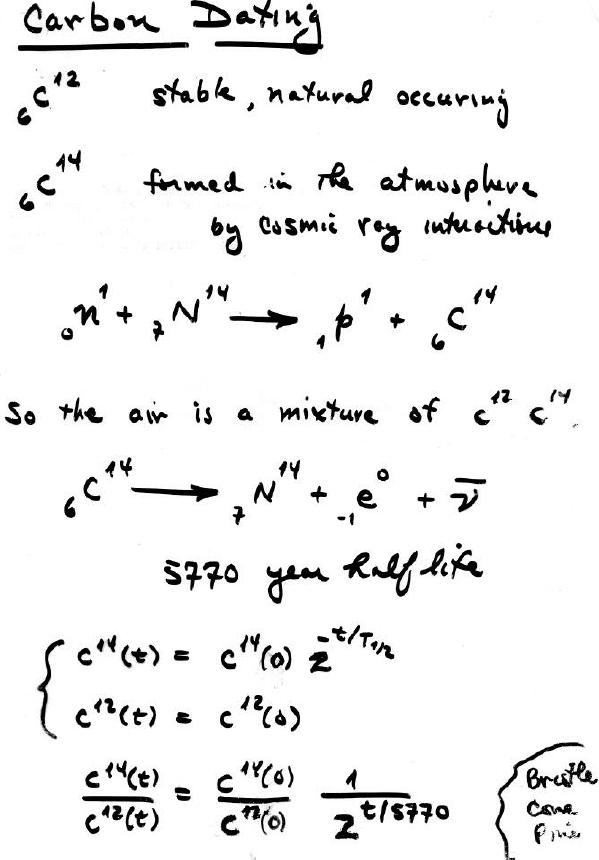 Carbon Dating
₆C¹² stable, natural occuring
₆C¹⁴ formed in the atmosphere
by cosmic ray interactions
₀n¹ + ₇N¹⁴ → ₁p¹ + ₆C¹⁴
So the air is a mixture of C¹² C¹⁴.
₆C¹⁴ → ₇N¹⁴ + ₋₁e⁰ + ν̅
5770 year half life
{ C¹⁴(t) = C¹⁴(0) 2^{-t/T_{1/2}}
C¹²(t) = C¹²(0)
C¹⁴(t)/C¹²(t) = C¹⁴(0)/C¹²(0) 1/2^{t/5770}
Bristle
Cone
Pine